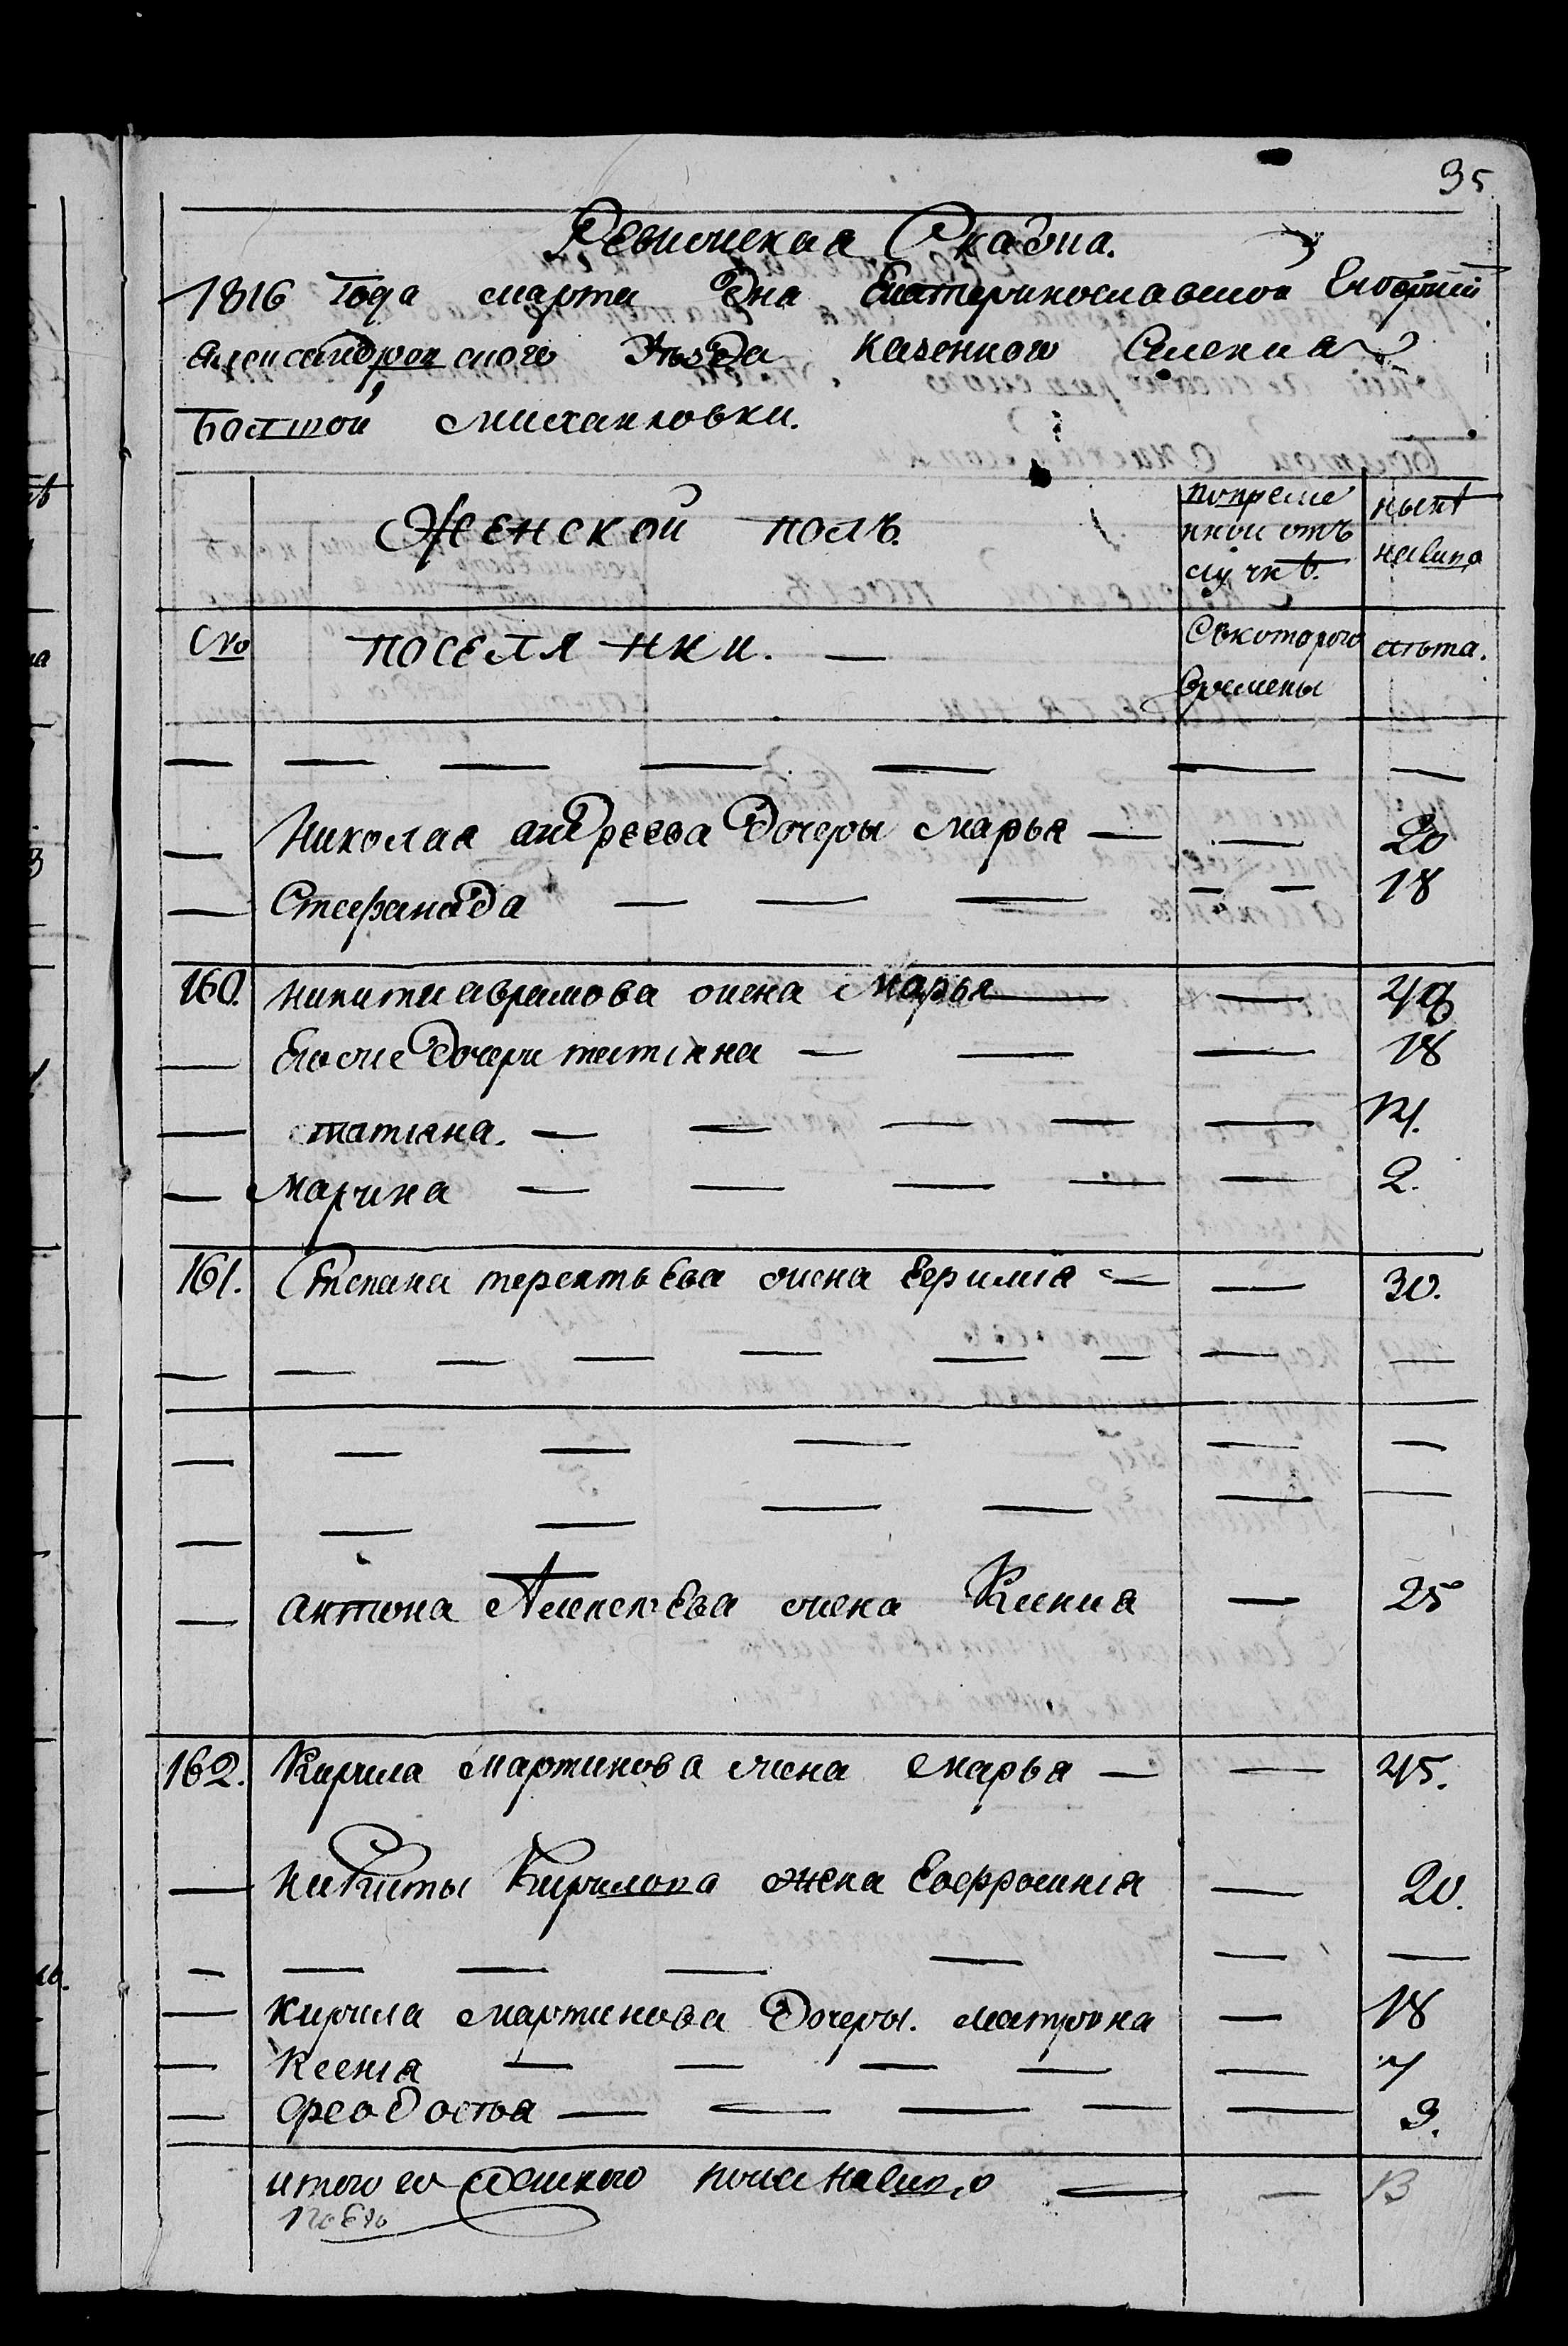 35
Ревижская Сказка.
1816 года марта дня Екатеринославской Губернии
александровского уезда казенного селения
Болшой михайловки.
Женской полъ.
повреме
нной отъ
лучкѣ.
нынѣ
налицо
№
поселянки. —
Съкоторого
времены
лѣта.
— — — — — — —
— Николая андреева дочеры марья — — 20
— Стефанида — — — — — 18
160. никити аврамова жена марья — — 49
— Еговие дочери татіяна — — — 18
— татіяна. — — — — — 14.
— марина — — — — — 2.
161. Степана терентьева жена Ефимія — — 30.
— — — — — — — — —
— — — — — —
— — — — — — —
— антона Алексѣева жена Ксения — 25
162. Кирила мартинова жена марья — — 45.
— никиты Кирилова жена Евфросинія — 20.
— — — — — — —
— кирила мартинова дочеры. матрона — 18
— Ксенія — — — — — 7
— феодосья — — — — — 3.
итого женского пола налицо — — 13